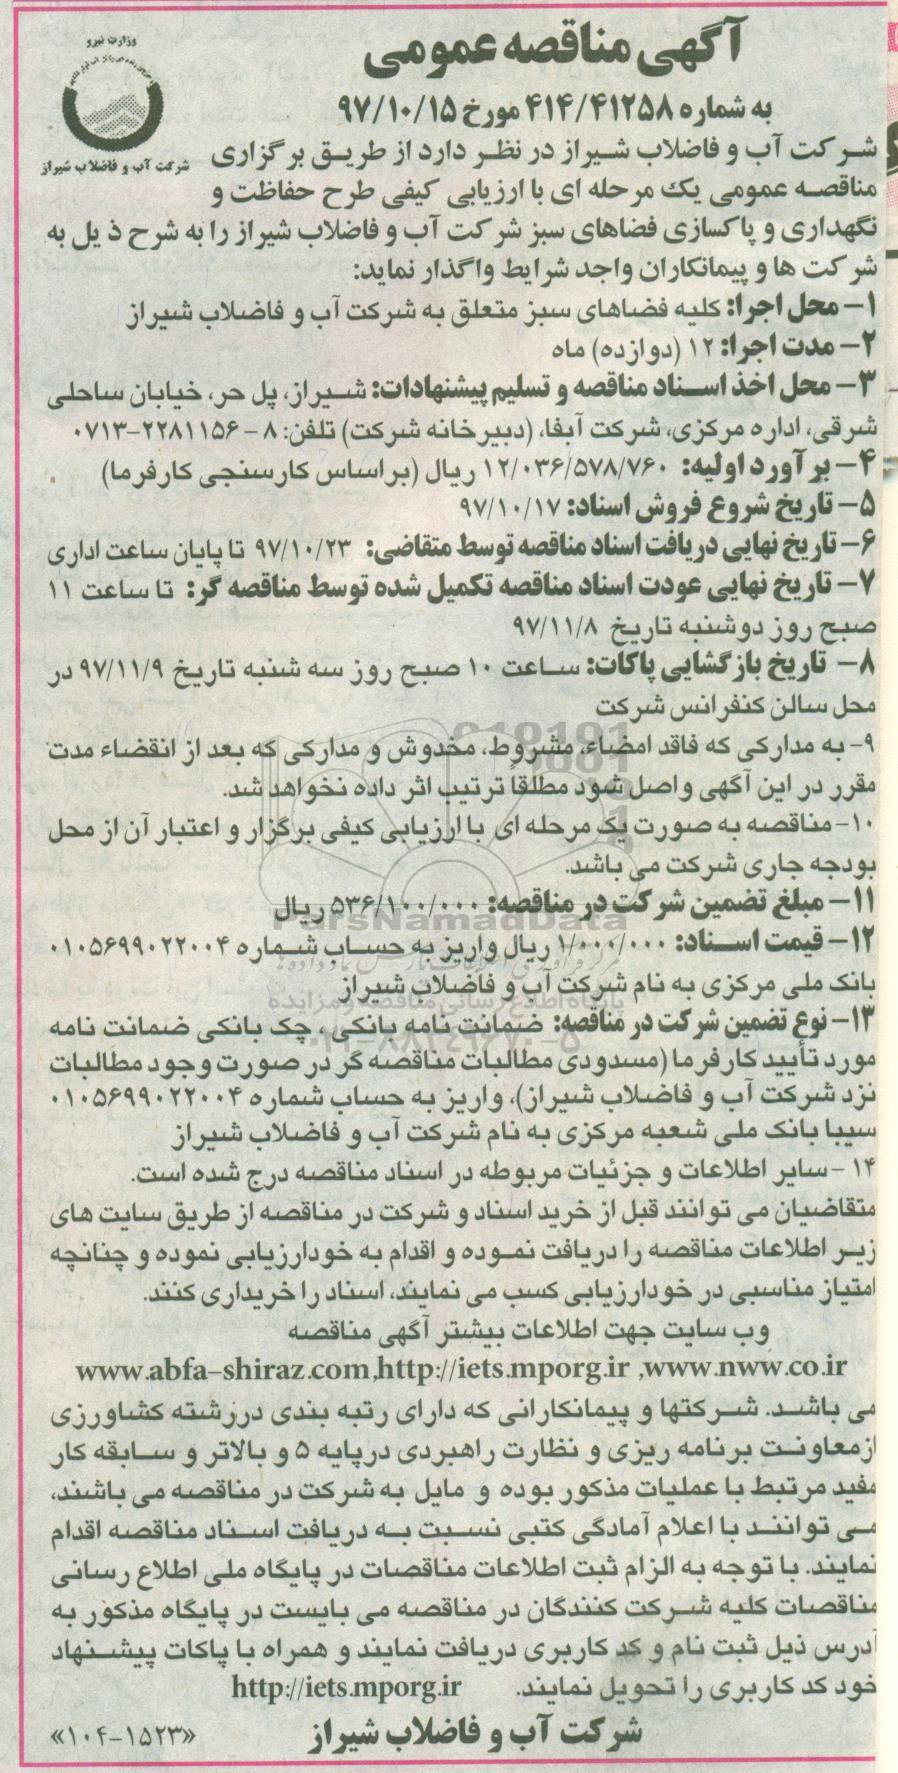 آگهی مناقصه عمومی
به شماره ۴۱۴/۴۱۲۵۸ مورخ ۹۷/۱۰/۱۵
وزارت نیرو
شرکت آب و فاضلاب شیراز
شرکت آب و فاضلاب شیراز در نظر دارد از طریق برگزاری
مناقصه عمومی یک مرحله ای با ارزیابی کیفی طرح حفاظت و
نگهداری و پاکسازی فضاهای سبز شرکت آب و فاضلاب شیراز را به شرح ذیل به
شرکت ها و پیمانکاران واجد شرایط واگذار نماید:
۱- محل اجرا: کلیه فضاهای سبز متعلق به شرکت آب و فاضلاب شیراز
۲- مدت اجرا: ۱۲ (دوازده) ماه
۳- محل اخذ اسناد مناقصه و تسلیم پیشنهادات: شیراز، پل حر، خیابان ساحلی
شرقی، اداره مرکزی، شرکت آبفا، (دبیرخانه شرکت) تلفن: ۸ - ۰۷۱۳-۲۲۸۱۱۵۶
۴- برآورد اولیه: ۱۲/۰۳۶/۵۷۸/۷۶۰ ریال (براساس کارسنجی کارفرما)
۵- تاریخ شروع فروش اسناد: ۹۷/۱۰/۱۷
۶- تاریخ نهایی دریافت اسناد مناقصه توسط متقاضی: ۹۷/۱۰/۲۳ تا پایان ساعت اداری
۷- تاریخ نهایی عودت اسناد مناقصه تکمیل شده توسط مناقصه گر: تا ساعت ۱۱
صبح روز دوشنبه تاریخ ۹۷/۱۱/۸
۸- تاریخ بازگشایی پاکات: ساعت ۱۰ صبح روز سه شنبه تاریخ ۹۷/۱۱/۹ در
محل سالن کنفرانس شرکت
۹- به مدارکی که فاقد امضاء، مشروط، مخدوش و مدارکی که بعد از انقضاء مدت
مقرر در این آگهی واصل شود مطلقاً ترتیب اثر داده نخواهد شد.
۱۰- مناقصه به صورت یک مرحله ای با ارزیابی کیفی برگزار و اعتبار آن از محل
بودجه جاری شرکت می باشد.
۱۱- مبلغ تضمین شرکت در مناقصه: ۵۳۶/۱۰۰/۰۰۰ ریال
ParsNamadData
۱۲- قیمت اسناد: ۱/۰۰۰/۰۰۰ ریال واریز به حساب شماره ۰۱۰۵۶۹۹۰۲۲۰۰۴
بانک ملی مرکزی به نام شرکت آب و فاضلاب شیراز
پایگاه اطلاع رسانی مناقصه و مزایده
۱۳- نوع تضمین شرکت در مناقصه: ضمانت نامه بانکی، چک بانکی ضمانت نامه
۰۲۱-۸۸۳۴۹۶۷۰-۵
مورد تأیید کارفرما (مسدودی مطالبات مناقصه گر در صورت وجود مطالبات
نزد شرکت آب و فاضلاب شیراز)، واریز به حساب شماره ۰۱۰۵۶۹۹۰۲۲۰۰۴
سیبا بانک ملی شعبه مرکزی به نام شرکت آب و فاضلاب شیراز
۱۴ - سایر اطلاعات و جزئیات مربوطه در اسناد مناقصه درج شده است.
متقاضیان می توانند قبل از خرید اسناد و شرکت در مناقصه از طریق سایت های
زیر اطلاعات مناقصه را دریافت نموده و اقدام به خودارزیابی نموده و چنانچه
امتیاز مناسبی در خودارزیابی کسب می نمایند، اسناد را خریداری کنند.
وب سایت جهت اطلاعات بیشتر آگهی مناقصه
www.abfa-shiraz.com,http://iets.mporg.ir ,www.nww.co.ir
می باشد. شرکتها و پیمانکارانی که دارای رتبه بندی دررشته کشاورزی
ازمعاونت برنامه ریزی و نظارت راهبردی درپایه ۵ و بالاتر و سابقه کار
مفید مرتبط با عملیات مذکور بوده و مایل به شرکت در مناقصه می باشند،
می توانند با اعلام آمادگی کتبی نسبت به دریافت اسناد مناقصه اقدام
نمایند. با توجه به الزام ثبت اطلاعات مناقصات در پایگاه ملی اطلاع رسانی
مناقصات کلیه شرکت کنندگان در مناقصه می بایست در پایگاه مذکور به
آدرس ذیل ثبت نام و کد کاربری دریافت نمایند و همراه با پاکات پیشنهاد
خود کد کاربری را تحویل نمایند. http://iets.mporg.ir
شرکت آب و فاضلاب شیراز
«۱۰۴-۱۵۲۳»